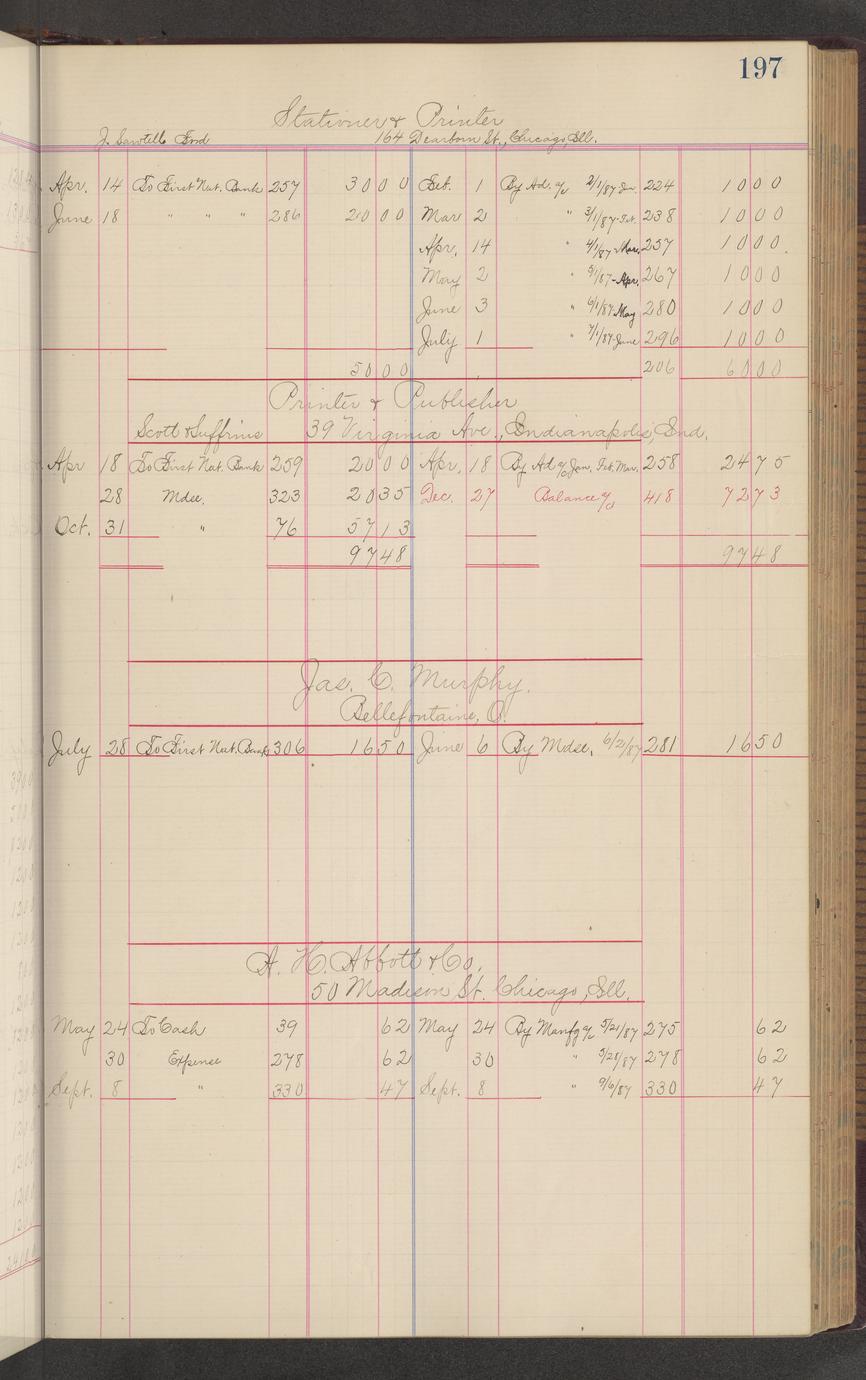 197
Stationer & Printer
J. Sawtelle Ford 164 Dearborn St., Chicago, Ill.
Apr. 14 To First Nat. Bank 257 30 00 Feb. 1 By Ad. a/c 2/1/87 Jan. 224 10 00
June 18 " " " 286 20 00 Mar 2 " 3/1/87-Feb. 238 10 00
Apr. 14 " 4/1/87-Mar. 257 10 00
May 2 " 5/1/87-Apr. 267 10 00
June 3 " 6/1/87 May 280 10 00
July 1 " 7/1/87-June 296 10 00
50 00 206 60 00
Printer & Publisher
39 Virginia Ave., Indianapolis, Ind.
Apr 18 To First Nat. Bank 259 20 00 Apr. 18 By Ad a/c Jan. Feb. Mar. 258 24 75
28 Mdse. 323 20 35 Dec. 27 Balance a/c 418 72 73
Oct. 31 " 76 57 13
97 48 97 48
Jas. C. Murphy.
Bellefontaine, O.
July 28 To First Nat. Bank 306 16 50 June 6 By Mdse, 6/2/87 281 16 50
A. H. Abbott & Co.
50 Madison St. Chicago, Ill.
May 24 To Cash 39 62 May 24 By Manfg a/c 5/21/87 275 62
30 Expense 278 62 30 " 5/28/87 278 62
Sept. 8 " 330 47 Sept. 8 " 9/6/87 330 47